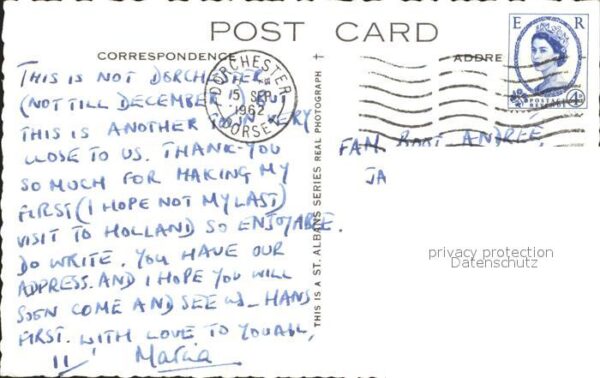 POST CARD
CORRESPONDENCE
ADDRE
E R
POSTAGE
REVENUE
DORCHESTER
15 SEP
1962
DORSET
THIS IS NOT DORCHESTER
(NOT TILL DECEMBER) BUT
THIS IS ANOTHER IN VERY
CLOSE TO US. THANK-YOU
SO MUCH FOR MAKING MY
FIRST (I HOPE NOT MY LAST)
VISIT TO HOLLAND SO ENJOYABLE.
DO WRITE. YOU HAVE OUR
ADDRESS. AND I HOPE YOU WILL
SOON COME AND SEE US_ HANS
FIRST. WITH LOVE TO YOU ALL,
Maria
THIS IS A ST. ALBANS SERIES REAL PHOTOGRAPH
FAM. BART ANDREE,
JA
privacy protection
Datenschutz